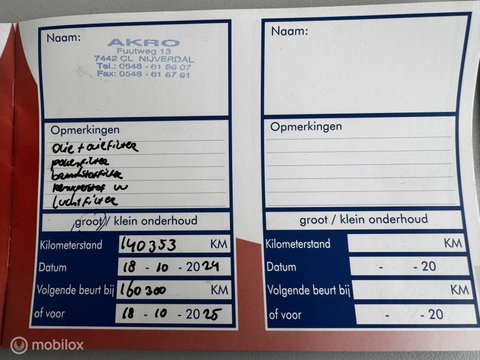 Naam:
AKRO
Fuutweg 13
7442 CL NIJVERDAL
Tel.: 0548 - 61 86 07
Fax: 0548 - 61 67 61
Opmerkingen
olie + oliefilter
pollenfilter
brandstoffilter
luchtfilter
groot / klein onderhoud
Kilometerstand 140353 KM
Datum 18 - 10 - 2024
Volgende beurt bij 160300 KM
of voor 18 - 10 - 2025
Naam:
Opmerkingen
groot / klein onderhoud
Kilometerstand KM
Datum - - 20
Volgende beurt bij KM
of voor - - 20
mobilox